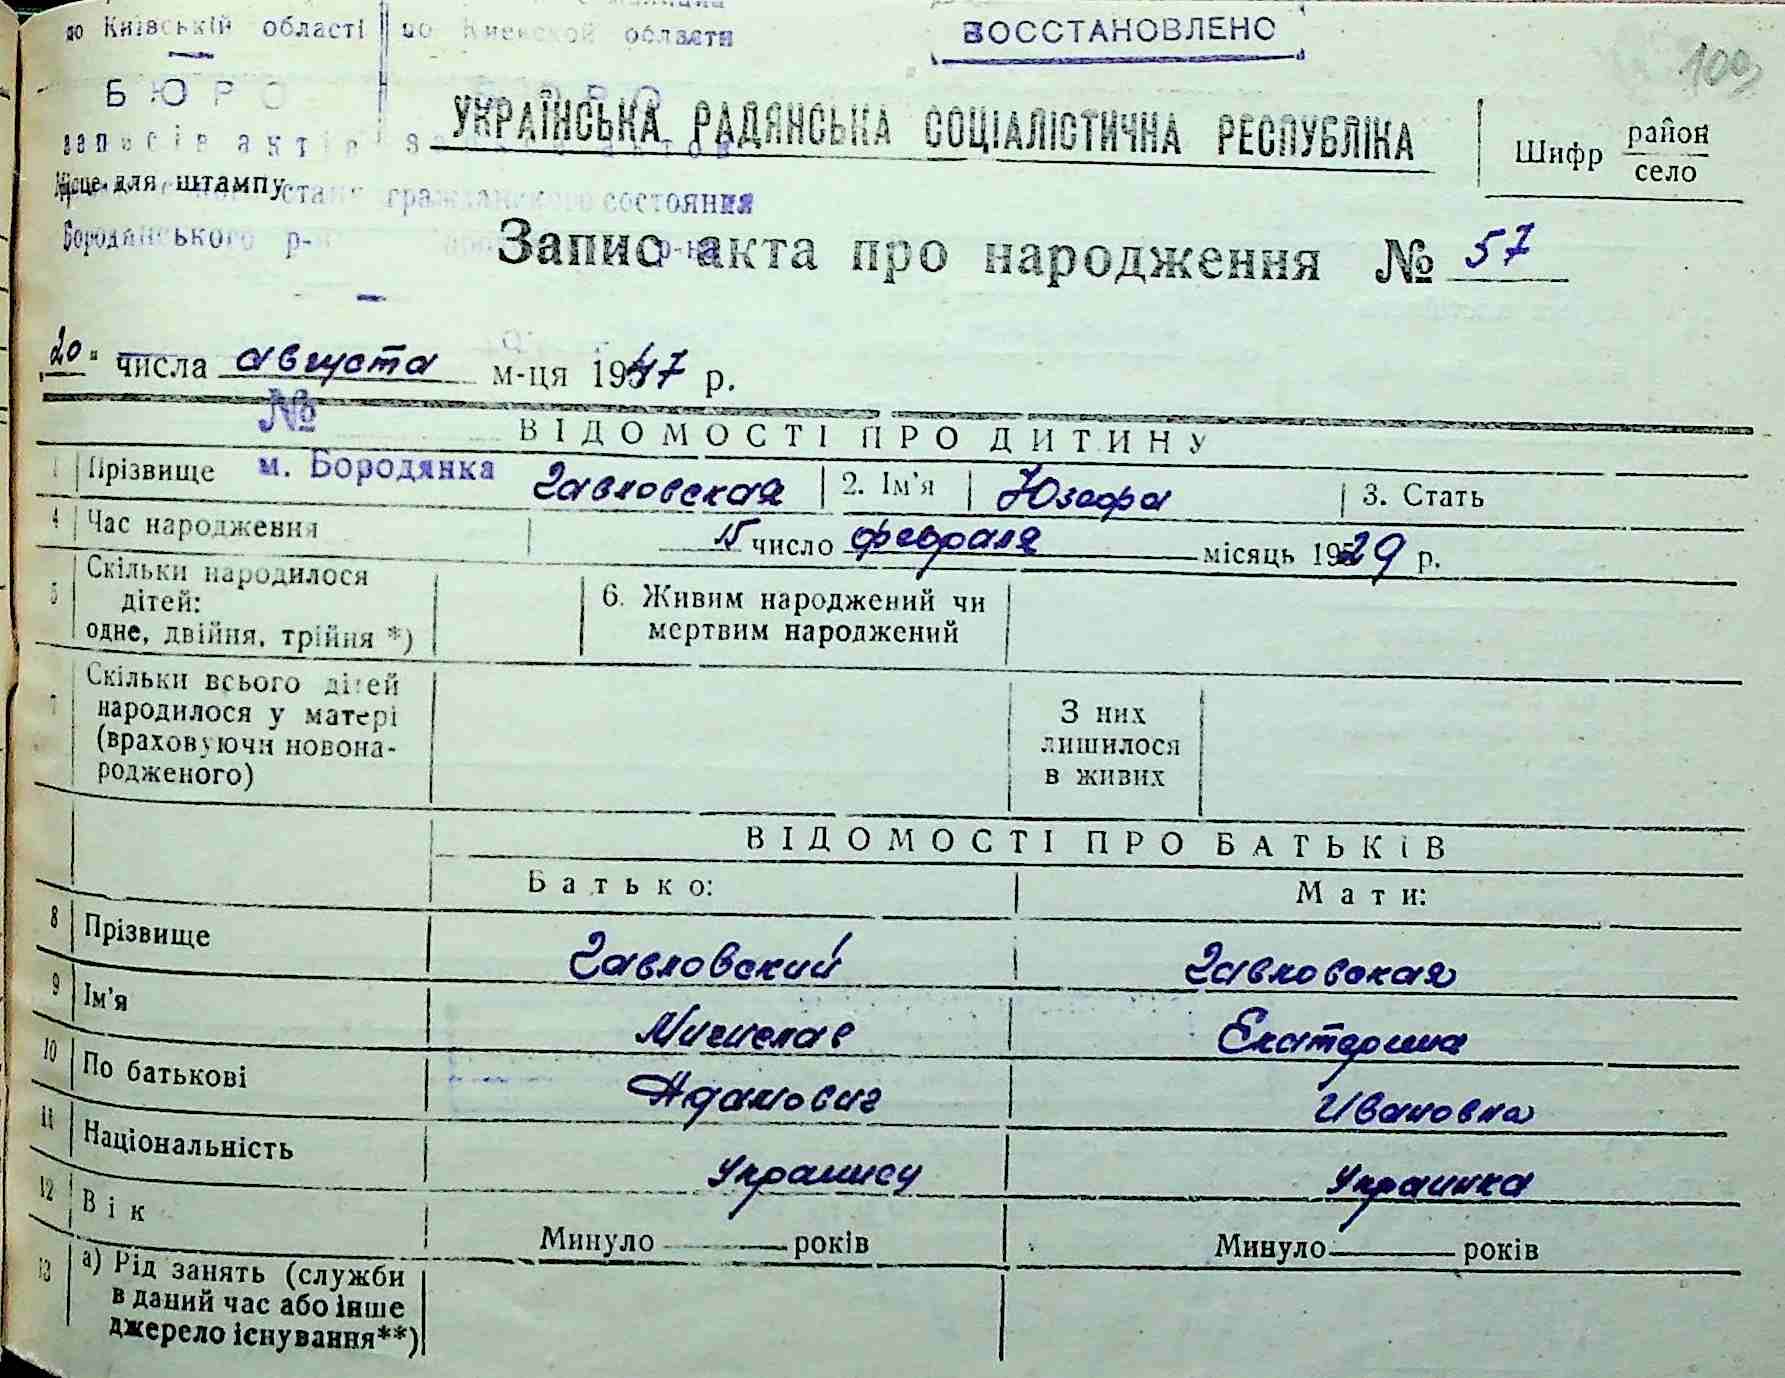 по Київській області по Киевской области
ВОССТАНОВЛЕНО
109
БЮРО
УКРАЇНСЬКА РАДЯНСЬКА СОЦІАЛІСТИЧНА РЕСПУБЛІКА
Шифр район село
записів актів
Місце для штампу
стану гражданского состояния
Бородянського р-
Запис акта про народження № 57
20 " числа августа м-ця 1947 р.
№
ВІДОМОСТІ ПРО ДИТИНУ
м. Бородянка
1 Прізвище Гавловская 2. Ім'я Юзефа 3. Стать
4 Час народження 15 число февраля місяць 1929 р.
5 Скільки народилося дітей: одне, двійня, трійня *) 6. Живим народжений чи мертвим народжений
7 Скільки всього дітей народилося у матері (враховуючи новонародженого) З них лишилося в живих
ВІДОМОСТІ ПРО БАТЬКІВ
Батько: Мати:
8 Прізвище Гавловский Гавловская
9 Ім'я Мичислав Екатерина
10 По батькові Адамович Ивановна
11 Національність Украинец Украинка
12 Вік Минуло років Минуло років
13 а) Рід занять (служби
в даний час або інше
джерело існування**)